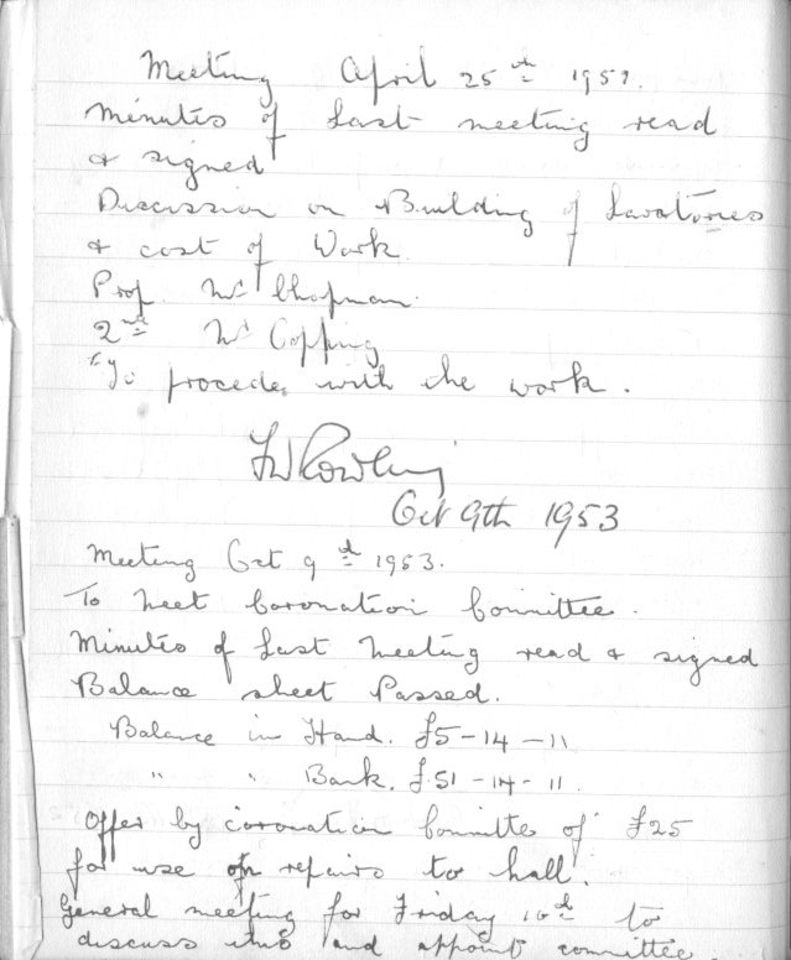 Meeting April 25th 195
Minutes of Last meeting read
& signed
Discussion on Building of Lavatories
& cost of Work
Prop. Mr Chapman.
2nd Mr Copping
To procede with the work.
FW Rowling
Oct 9th 1953
Meeting Oct 9th 1953.
To Meet Coronation Committee.
Minutes of Last Meeting read & signed
Balance sheet Passed.
Balance in Hand. £5-14-11
" " Bank. £51-14-11.
Offer by coronation Committe of £25
for use on repairs to hall.
General meeting for Friday 16th to
discuss this and appoint committee.